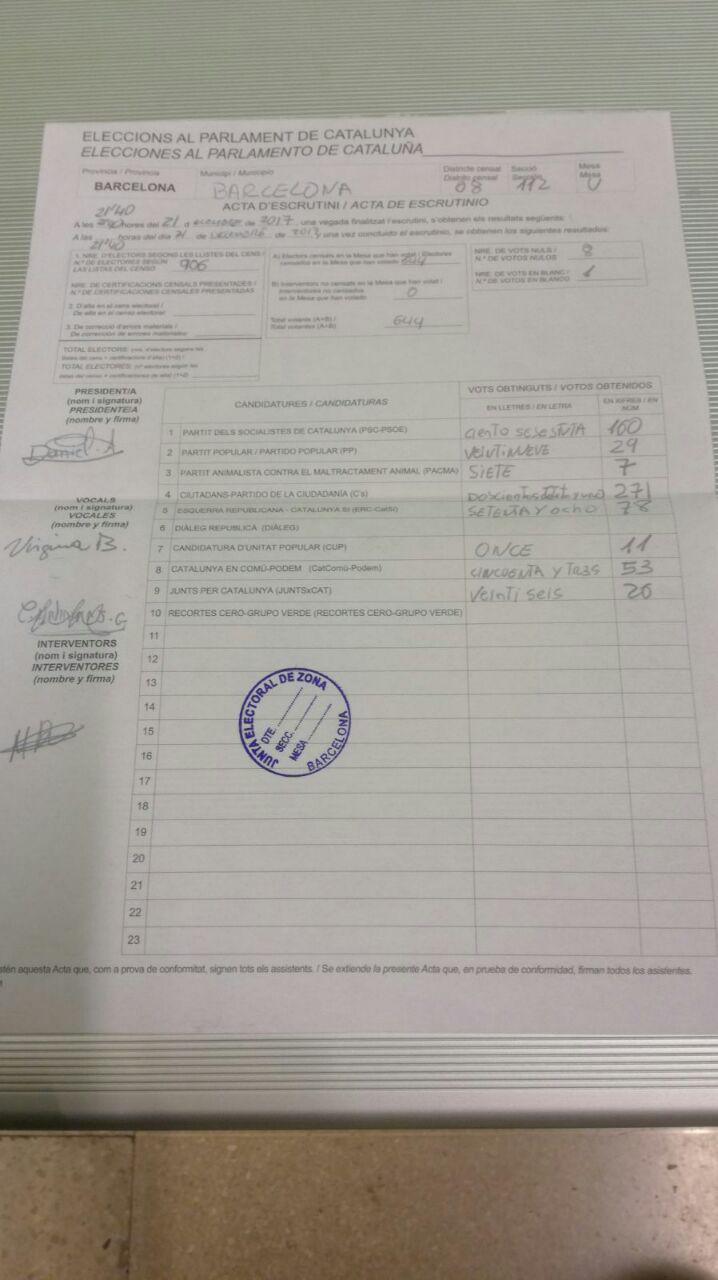 ELECCIONS AL PARLAMENT DE CATALUNYA
ELECCIONES AL PARLAMENTO DE CATALUÑA
Provincia / Provincia Municipi / Municipio Districte censal Secció Mesa
Distrito censal Sección Mesa
BARCELONA BARCELONA 08 112 U
ACTA D'ESCRUTINI / ACTA DE ESCRUTINIO
21'40
A les hores del 21 de 2017, una vegada finalitzat l'escrutini, s'obtenen els resultats següents:
A las horas del día 21 de de 2017 y una vez concluido el escrutinio, se obtienen los siguientes resultados:
21'40
1. NRE. D'ELECTORS SEGONS LES LLISTES DEL CENS /
N.º DE ELECTORES SEGÚN
LAS LISTAS DEL CENSO 906
NRE. DE CERTIFICACIONS CENSALS PRESENTADES /
N.º DE CERTIFICACIONES CENSALES PRESENTADAS
2. D'alta en el cens electoral /
De alta en el censo electoral
3. De correcció d'errors materials /
De corrección de errores materiales
TOTAL ELECTORS:
TOTAL ELECTORES:
A) Electors censats en la Mesa que han votat / Electores
censados en la Mesa que han votado 644
B) Interventors no censats en la Mesa que han votat /
Interventores no censados
en la Mesa que han votado 0
Total votants (A+B) /
Total votantes (A+B) 644
NRE. DE VOTS NULS /
N.º DE VOTOS NULOS 8
NRE. DE VOTS EN BLANC /
N.º DE VOTOS EN BLANCO 1
PRESIDENT/A
(nom i signatura)
PRESIDENTE/A
(nombre y firma)
Daniel A
VOCALS
(nom i signatura)
VOCALES
(nombre y firma)
Virginia B.
INTERVENTORS
(nom i signatura)
INTERVENTORES
(nombre y firma)
CANDIDATURES / CANDIDATURAS VOTS OBTINGUTS / VOTOS OBTENIDOS
EN LLETRES / EN LETRA EN XIFRES / EN NÚM
1 PARTIT DELS SOCIALISTES DE CATALUNYA (PSC-PSOE) 160
2 PARTIT POPULAR / PARTIDO POPULAR (PP) VEINTINUEVE 29
3 PARTIT ANIMALISTA CONTRA EL MALTRACTAMENT ANIMAL (PACMA) SIETE 7
4 CIUTADANS-PARTIDO DE LA CIUDADANÍA (C's) 271
5 ESQUERRA REPUBLICANA - CATALUNYA SÍ (ERC-CatSí) SETENTA Y OCHO 78
6 DIÀLEG REPUBLICÀ (DIÀLEG)
7 CANDIDATURA D'UNITAT POPULAR (CUP) ONCE 11
8 CATALUNYA EN COMÚ-PODEM (CatComú-Podem) CINCUENTA Y TRES 53
9 JUNTS PER CATALUNYA (JUNTSxCAT) Veinti seis 26
10 RECORTES CERO-GRUPO VERDE (RECORTES CERO-GRUPO VERDE)
11
12
13
14
15
16
17
18
19
20
21
22
23
JUNTA ELECTORAL DE ZONA
DTE.
SECC.
MESA
BARCELONA
estén aquesta Acta que, com a prova de conformitat, signen tots els assistents. / Se extiende la presente Acta que, en prueba de conformidad, firman todos los asistentes.